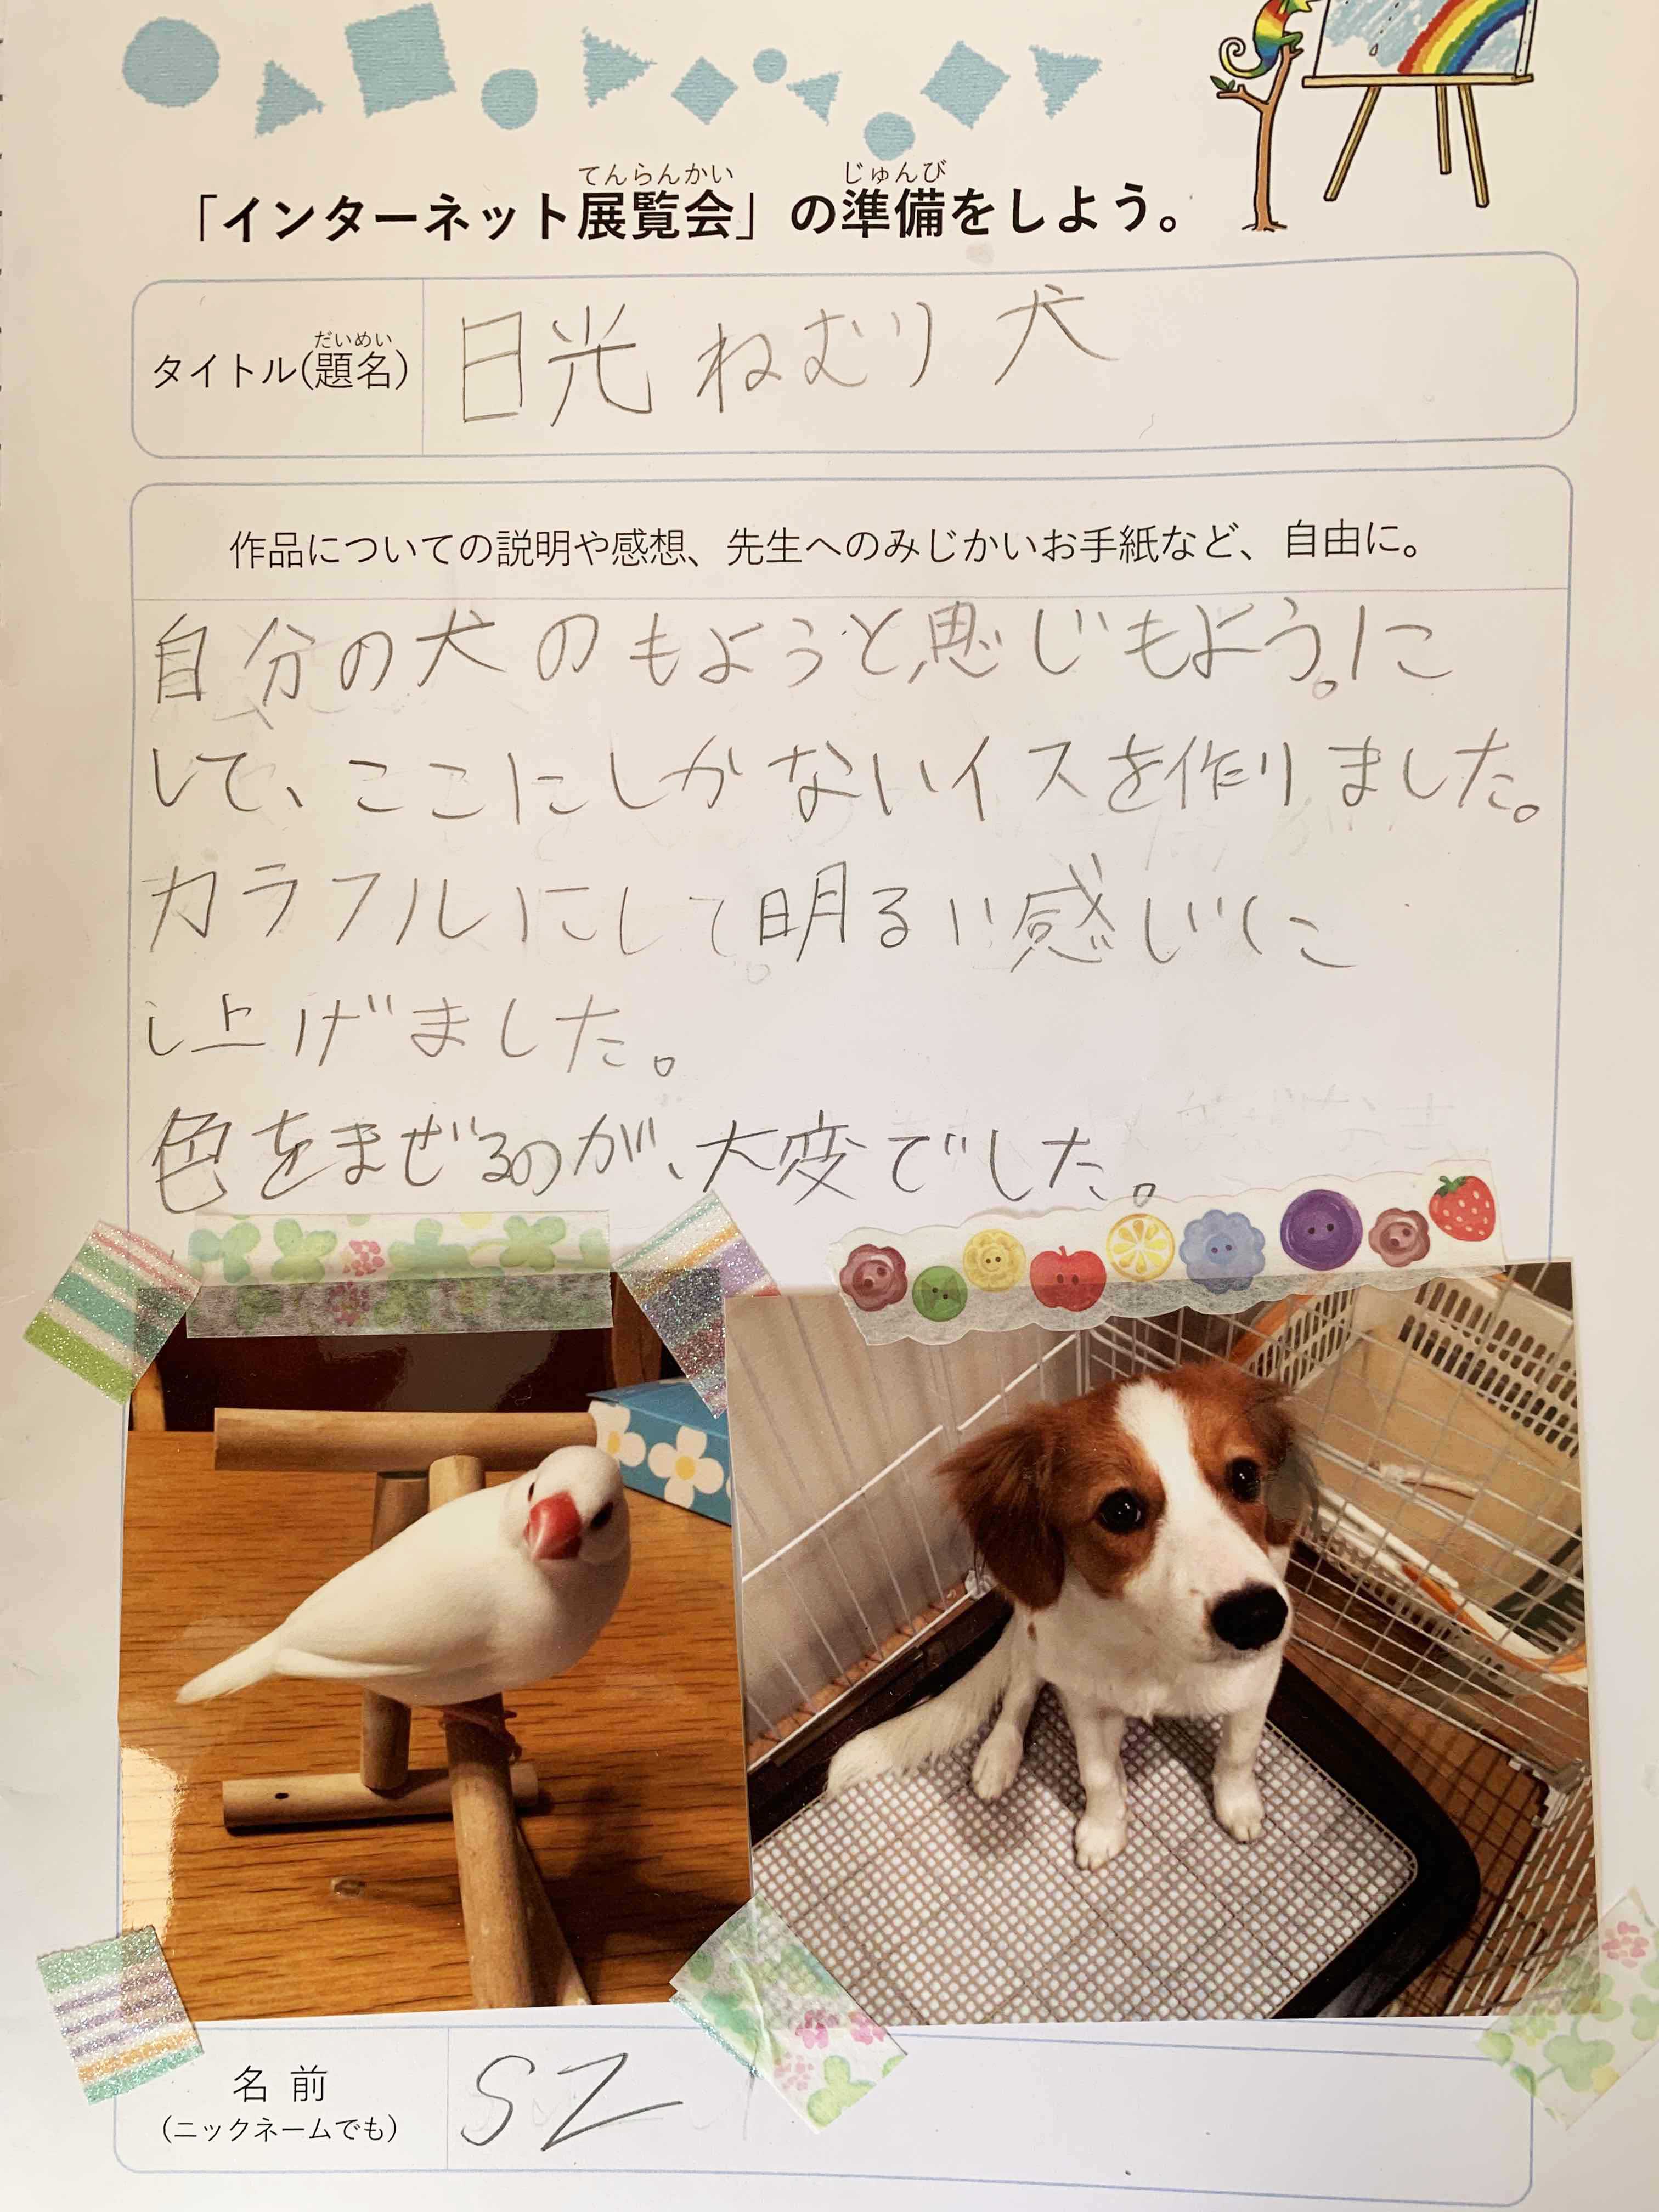 てんらんかい じゅんび
「インターネット展覧会」の準備をしよう。
だいめい
タイトル(題名)
日光ねむり犬
作品についての説明や感想、先生へのみじかいお手紙など、自由に。
自分の犬のもようと思じもよう。に
して、ここにしかないイスを作りました。
カラフルにして。明るい感じに
し上げました。
色をまぜるのが、大変でした。
名前
(ニックネームでも)
SZ